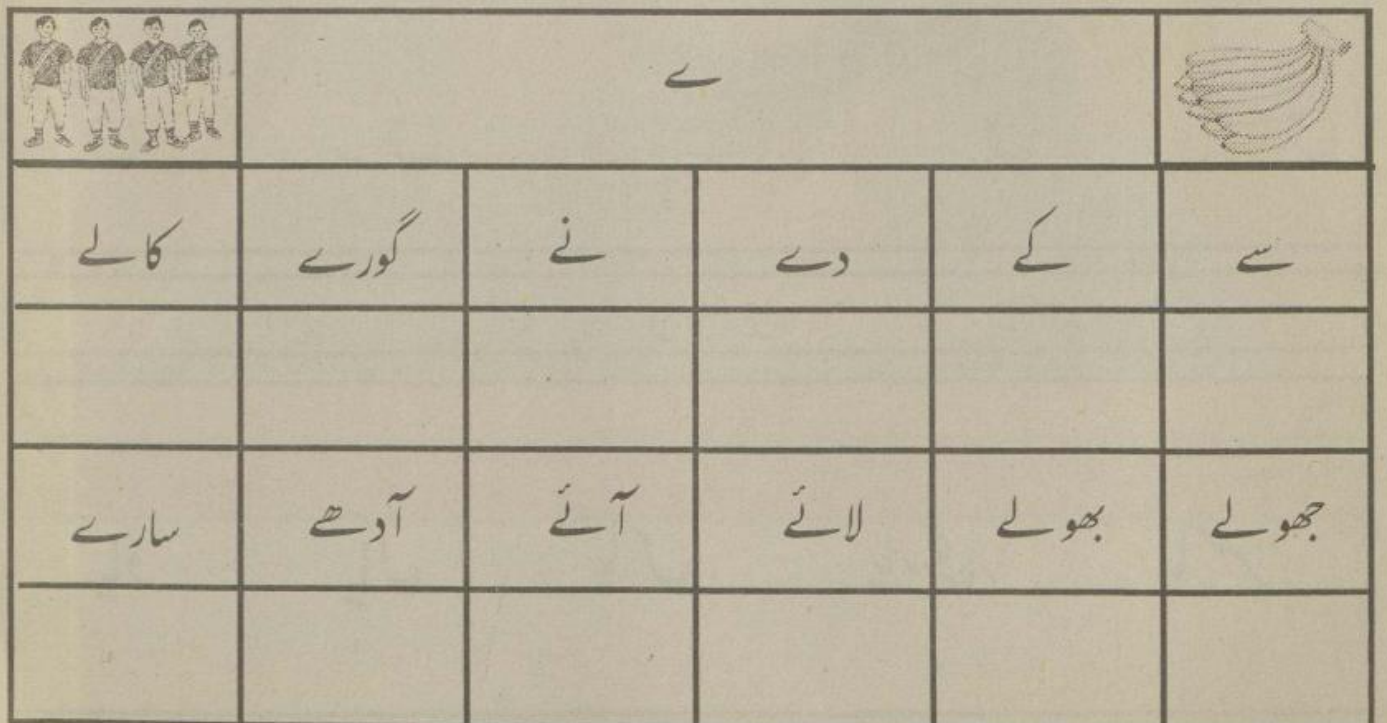 ے
سے کے دے نے گورے کالے
جھولے بھولے لائے آئے آدھے سارے